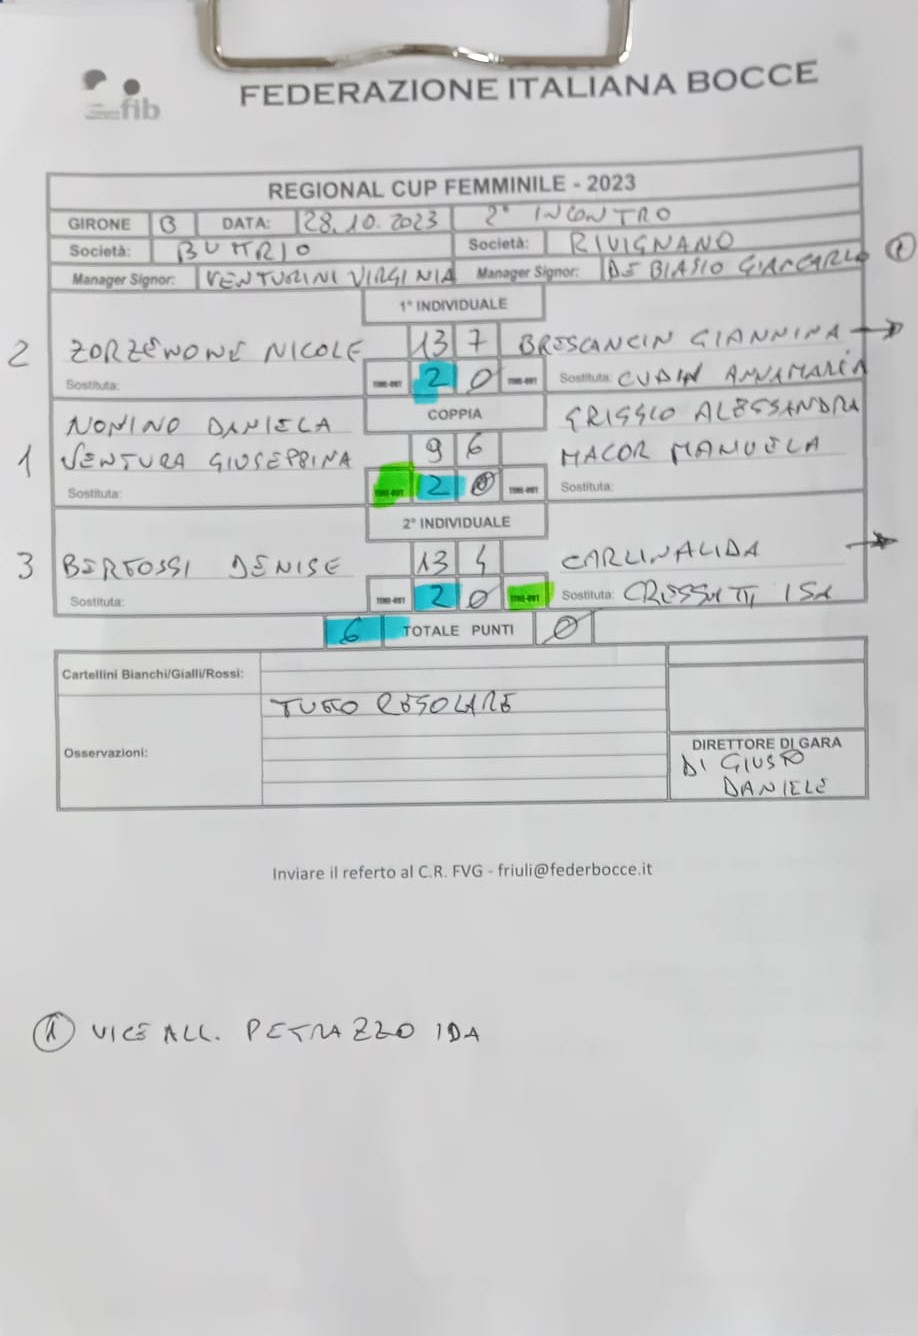 fib
FEDERAZIONE ITALIANA BOCCE
REGIONAL CUP FEMMINILE - 2023
GIRONE B DATA: 28.10.2023 2° INCONTRO
Società: BUTTRIO Società: RIVIGNANO
Manager Signor: VENTURINI VIRGINIA Manager Signor: DE BIASIO GIANCARLO 1
1° INDIVIDUALE
2 ZORZENONE NICOLE 13 7 BRESCANCIN GIANNINA →
Sostituta: TIME-OUT 2 0 TIME-OUT Sostituta: CUDIN ANNAMARIA
NONINO DANIELA COPPIA GRIGGIO ALESSANDRA
1 VENTURA GIUSEPPINA 9 6 MACOR MANUELA
Sostituta: TIME-OUT 2 0 TIME-OUT Sostituta:
2° INDIVIDUALE
3 BERTOSSI DENISE 13 4 CARLIN ALIDA →
Sostituta: TIME-OUT 2 0 TIME-OUT Sostituta: ISA
6 TOTALE PUNTI 0
Cartellini Bianchi/Gialli/Rossi:
TUTTO REGOLARE
Osservazioni:
DIRETTORE DI GARA
DI GIUSTO
DANIELE
Inviare il referto al C.R. FVG - friuli@federbocce.it
1 VICE ALL. PETRAZZO IDA